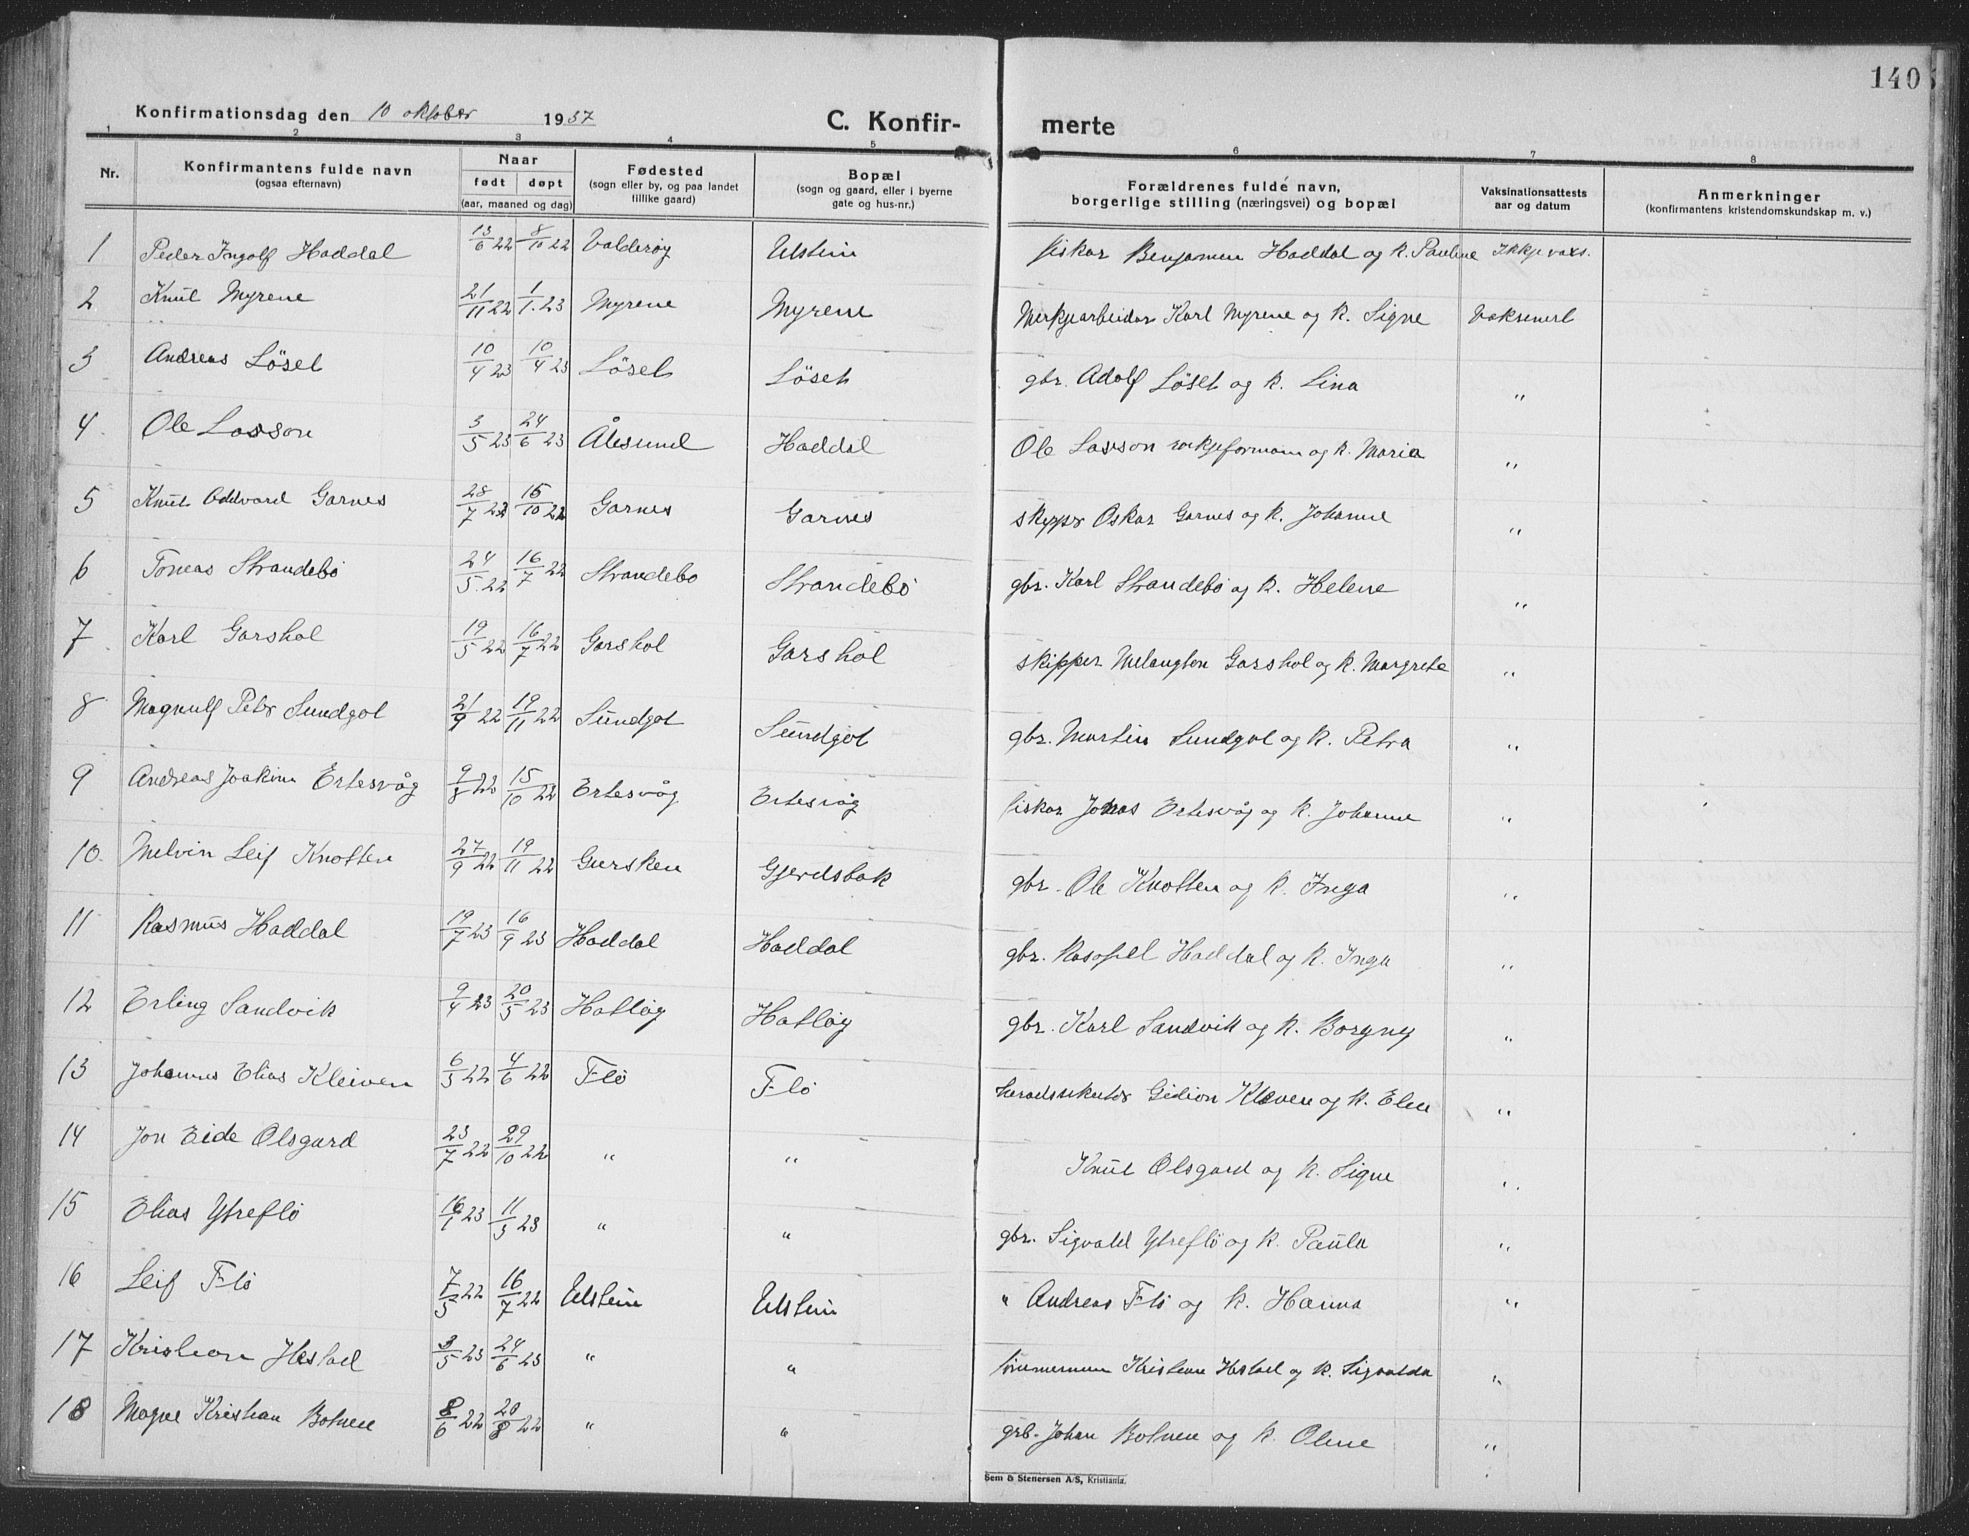 140
Konfirmationsdag den 10 oktober 1937
C. Konfirmerte
1 2 3 4 5 6 7 8
Nr. Konfirmantens fulde navn (ogsaa efternavn) Naar født døpt (aar, maaned og dag) Fødested (sogn eller by, og paa landet tillike gaard) Bopæl (sogn og gaard, eller i byerne gate og hus-nr.) Forældrenes fulde navn, borgerlige stilling (næringsvei) og bopæl Vaksinationsattests aar og datum Anmerkninger (konfirmantens kristendomskundskap m. v.)
1 Peder Ingolf Haddal 13/6 22 8/10 22 Valderøy Ulstein fiskar Benjamin Haddal og k. Pauline Ikkje vaks.
2 Knut Myrene 21/11 22 1/1. 23 Myrene Myrene Verkjearbeidar Karl Myrene og k. Signe Vaksinert
3 Andreas Løset 10/4 23 10/4 23 Løset Løset gbr. Adolf Løset og k. Lina "
4. Ole Lasson 3/5 23 24/6 23 Ålesund Haddal Ole Lasson verkjeformann og k. Maria "
5 Knut Oddvard Garnes 28/7 22 15/10 22 Garnes Garnes skyppr Oskar Garnes og k. Johanne "
6 Tomas Strandebø 24/5. 22 16/7 22 Strandebø Strandebø gbr. Karl Strandebø og k. Helene "
7 Karl Garshol 19/5 22 16/7 22 Garshol Garshol skipper Melangton Garshol og k. Margrete "
8 Magnulf Petr Sundgot 21/9 22 19/11 22 Sundgot Sundgot gbr. Martin Sundgot og k. Petra "
9 Andreas Joakim Ertesvåg 9/8 22 15/10 22 Ertesvåg Ertesvåg fiskar Jonas Ertesvåg og k. Johanne "
10. Melvin Leif Knotten 27/9 22 19/11 22 Gursken Gjerdsbak gbr. Ole Knotten og k. Inga "
11 Rasmus Haddal 19/7 23 16/9 23 Haddal Haddal gbr. Haddal og k. Inga "
12 Erling Sandvik 9/4 23 20/5 23 Hatløy Hatløy gbr. Karl Sandvik og k. Borgny "
13 Johannes Elias Kleiven 6/5 22 4/6 22 Flø Flø heradsskulestyr Gidion Kleven og k. Elen "
14 Jon Eide Olsgard 23/7 22 29/10 22 " " Knut Olsgard og k. Signe "
15 Elias Ytreflø 16/1 23 11/3 23 " " gbr. Sigvald Ytreflø og k. Paula "
16 Leif Flø 7/5 22 16/7 22 Ulstein Ulstein " Andreas Flø og k. Hanna "
17 Kristian Hestad 3/5 23 24/6 23 " " timmermann Kristian Hestad og k. Sigvalda "
18 Magne Kristian Botnen 8/6 22 20/8 22 " " grb. Johan Botnen og k. Oline "
Sem & Stenersen A/S, Kristiania.